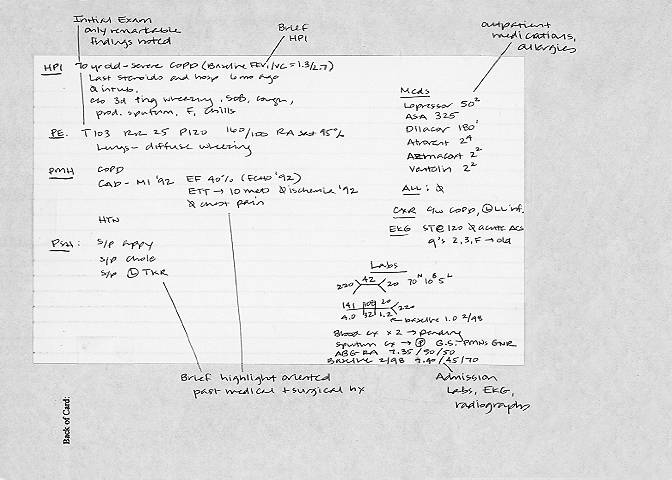 Initial Exam
only remarkable
findings noted
Brief
HPI
outpatient
medications,
allergies
HPI 70 yr old - severe COPD (Baseline FEV1/VC = 1.3/2.7)
Last steroids and hosp 6 mo ago
Ø intub,
c/o 3d ↑ing wheezing, SOB, cough,
prod. sputum, F, chills
PE: T103 RR 25 P120 160/100 RA sat 95%
Lungs - diffuse wheezing
PMH COPD
CAD - MI '92 EF 40% (ECHO '92)
ETT → 10 mets Ø ischemia '92
Ø chest pain
HTN
PSH: s/p appy
s/p chole
s/p Ⓛ TKR
Meds
Lopressor 50²
ASA 325
Dilacor 180¹
Atrovent 2⁴
Azmacort 2²
Ventolin 2²
All: Ø
CXR c/w COPD, ⓁLL inf.
EKG ST@120 Ø acute Δs
q's 2,3,F → old
Labs
220 42 20 70ᴺ 10ᴮ 5ᴸ
141 108 20 220
4.0 32 1.2
baseline 1.0 2/98
Blood cx x 2 → pending
Sputum cx → Ⓟ G.S.: PMNs GNR
ABG RA 7.35/50/50
Baseline 2/98 7.40/45/70
Brief highlight oriented
past medical + surgical hx
Admission
Labs, EKG,
radiographs
Back of Card: